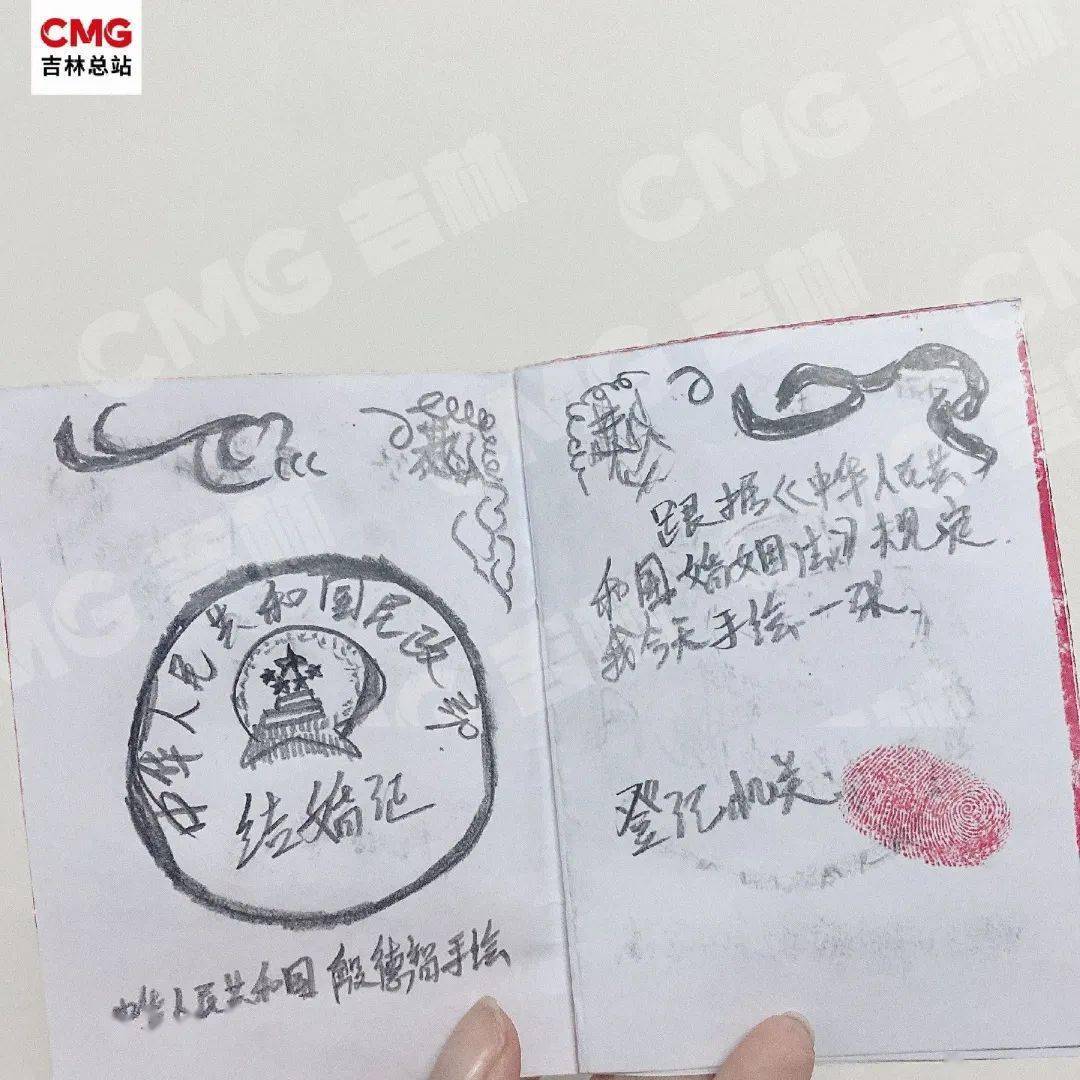 CMG
吉林总站
CMG 吉林
CMG 吉林
中华人民共和国民政部
结婚证
中华人民共和国殷德智手绘
跟据《中华人民共
和国婚姻法》规定.
我今天手绘一张,
登记机关: